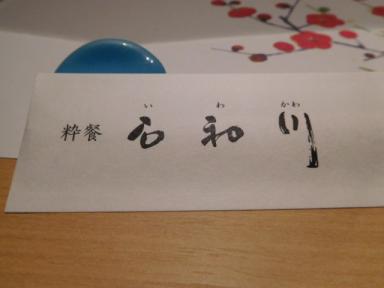 いわかわ
粋餐 石和川